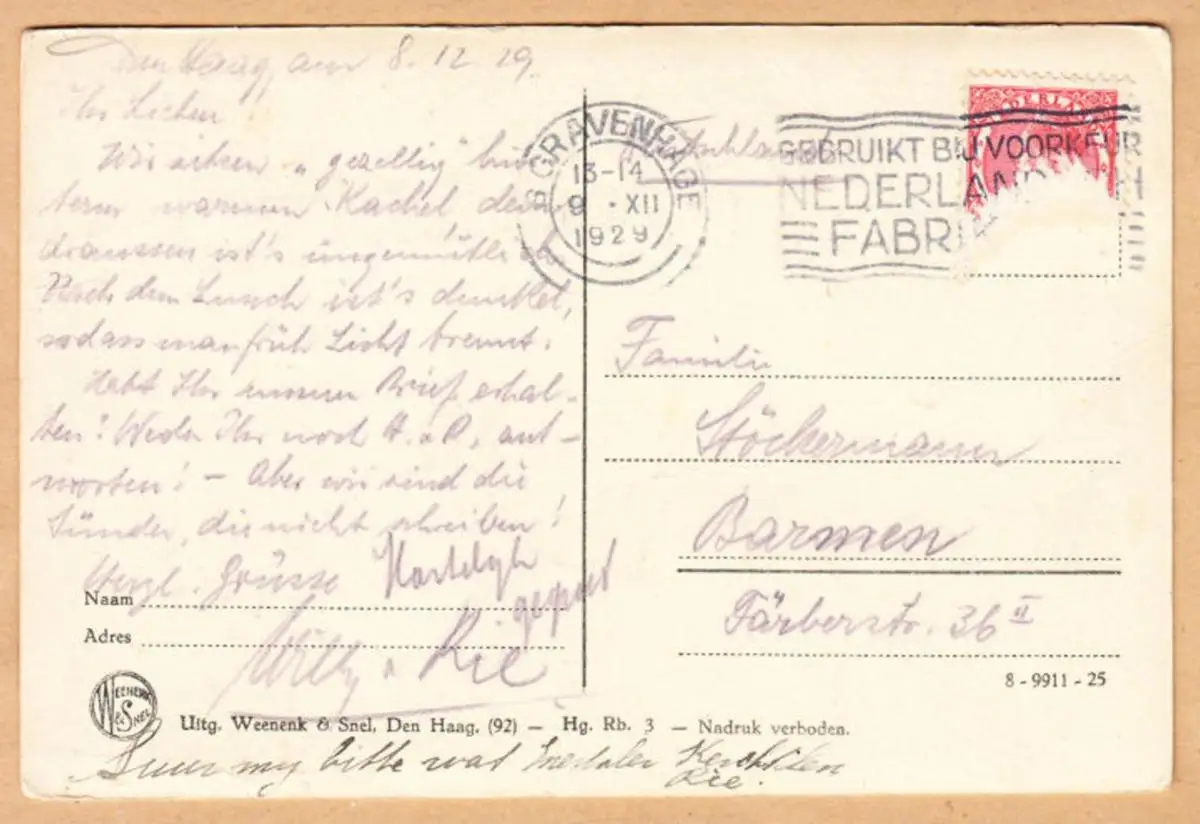 Den Haag, am 8.12.29.
Ihr Lieben!
Wir sitzen "gezellig" hin-
term warmen Kachel denn
draussen ist's ungemütlich.
Nach dem Lunch ist's dunkel,
sodass man früh Licht brennt.
Habt Ihr unsern Brief erhal-
ten? Weder Ihr noch H. u P. ant-
worten! – Aber wir sind die
Sünder, die nicht schreiben!
Herzl. Grüsse Hartelijk
gegroet
Willy u Rie
Naam
Adres
WEENENK & SNEL
Uitg. Weenenk & Snel, Den Haag. (92) — Hg. Rb. 3 — Nadruk verboden.
bitte wat
Rie.
'S GRAVENHAGE
13-14
9 · XII
1929
Deutschland
GEBRUIKT BIJ VOORKEUR
NEDERLANDSCH
FABRI
NEDERLAND
Familie
Stöckermann
Barmen
Färberstr. 36 II
8-9911-25